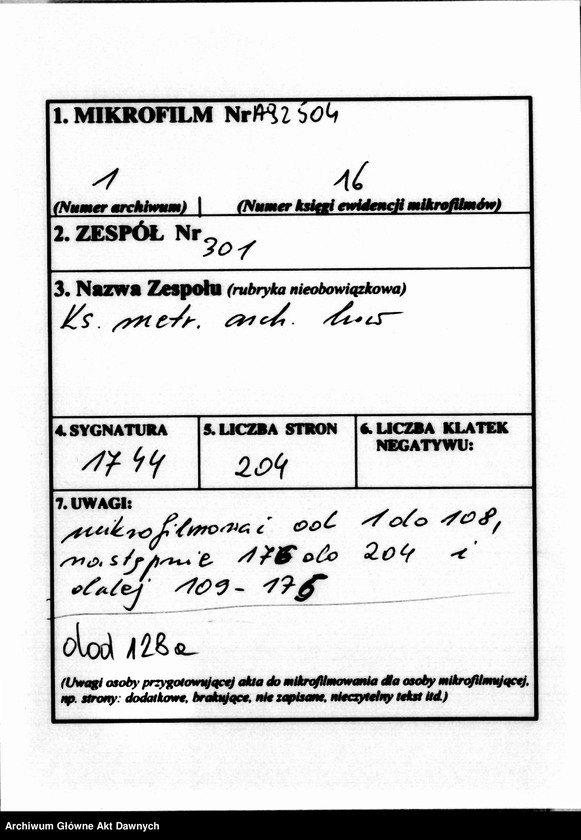 1. MIKROFILM Nr A92504
1 16
(Numer archiwum) (Numer księgi ewidencji mikrofilmów)
2. ZESPÓŁ Nr 301
3. Nazwa Zespołu (rubryka nieobowiązkowa)
Ks. metr. arch. lwow
4. SYGNATURA 5. LICZBA STRON 6. LICZBA KLATEK
NEGATYWU:
1744 204
7. UWAGI:
mikrofilmować od 1 do 108,
następnie 176 do 204 i
dalej 109-175
dod 128a
(Uwagi osoby przygotowującej akta do mikrofilmowania dla osoby mikrofilmującej,
np. strony: dodatkowe, brakujące, nie zapisane, nieczytelny tekst itd.)
Archiwum Główne Akt Dawnych